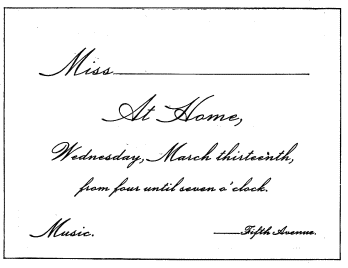 Miss
At Home,
Wednesday, March thirteenth,
from four until seven o'clock.
Music.
Fifth Avenue.